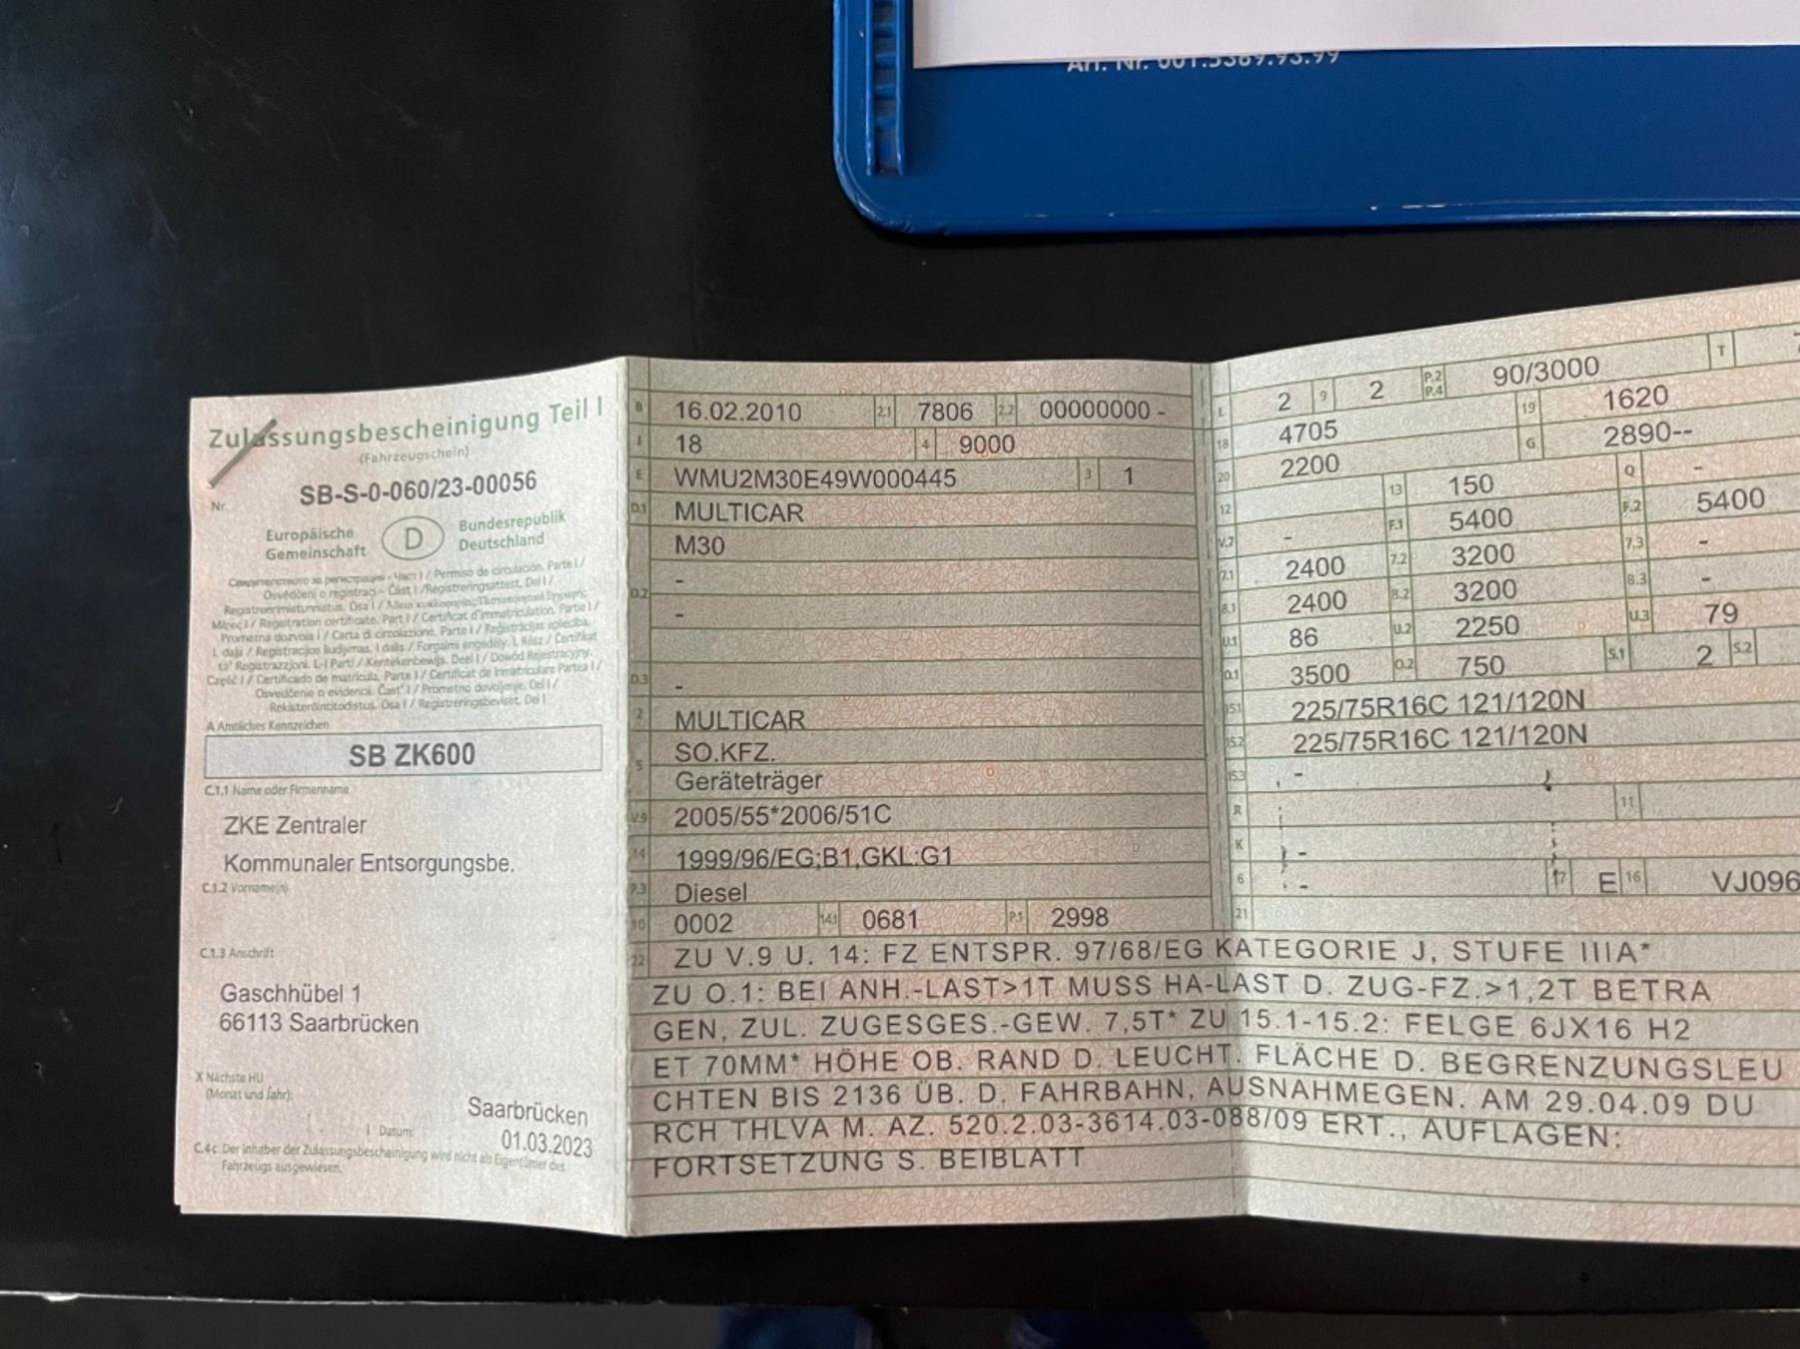 Art. Nr. 001.5389.93.99
Zulassungsbescheinigung Teil I
(Fahrzeugschein)
Nr. SB-S-0-060/23-00056
Europäische Gemeinschaft D Bundesrepublik Deutschland
Osvědčení o registraci - Část I / Registreringsattest, Del I /
Mērec I / Registration certificate, Part I / Certificat d'immatriculation, Partie I /
Prometna dozvola I / Carta di circolazione, Parte I / Reģistrācijas apliecība,
I. daļa / Registracijos liudijimas, I dalis / Forgalmi engedély, I. Rész / Ċertifikat
ta' Reġistrazzjoni, L-I Parti / Kentekenbewijs, Deel I / Dowód Rejestracyjny,
Część I / Certificado de matrícula, Parte I / Certificat de înmatriculare Partea I /
Osvedčenie o evidencii, Časť I / Prometno dovoljenje, Del I /
Rekisteröintitodistus, Osa I / Registreringsbeviset, Del I
A Amtliches Kennzeichen
SB ZK600
C.1.1 Name oder Firmenname
ZKE Zentraler
Kommunaler Entsorgungsbe.
C.1.2 Vorname(n)
C.1.3 Anschrift
Gaschhübel 1
66113 Saarbrücken
X Nächste HU
(Monat und Jahr):
Saarbrücken
Datum: 01.03.2023
C.4c: Der Inhaber der Zulassungsbescheinigung wird nicht als Eigentümer des
Fahrzeugs ausgewiesen.
B 16.02.2010 2.1 7806 2.2 00000000 -
J 18 4 9000
E WMU2M30E49W000445 3 1
D.1 MULTICAR
M30
-
D.2 -
D.3 -
2 MULTICAR
SO.KFZ.
5 Geräteträger
V.9 2005/55*2006/51C
14 1999/96/EG;B1,GKL:G1
P.3 Diesel
10 0002 14.1 0681 P.1 2998
L 2 9 2 P.2 P.4 90/3000 T
18 4705 19 1620
20 2200 G 2890--
12 13 150 Q -
V.7 - F.1 5400 F.2 5400
7.1 2400 7.2 3200 7.3 -
8.1 2400 8.2 3200 8.3 -
U.1 86 U.2 2250 U.3 79
O.1 3500 O.2 750 S.1 2 S.2
15.1 225/75R16C 121/120N
15.2 225/75R16C 121/120N
15.3 -
R 11
K -
6 - 17 E 16 VJ096
21
22 ZU V.9 U. 14: FZ ENTSPR. 97/68/EG KATEGORIE J, STUFE IIIA*
ZU O.1: BEI ANH.-LAST>1T MUSS HA-LAST D. ZUG-FZ.>1,2T BETRA
GEN, ZUL. ZUGESGES.-GEW. 7,5T* ZU 15.1-15.2: FELGE 6JX16 H2
ET 70MM* HÖHE OB. RAND D. LEUCHT. FLÄCHE D. BEGRENZUNGSLEU
CHTEN BIS 2136 ÜB. D. FAHRBAHN, AUSNAHMEGEN. AM 29.04.09 DU
RCH THLVA M. AZ. 520.2.03-3614.03-088/09 ERT., AUFLAGEN:
FORTSETZUNG S. BEIBLATT